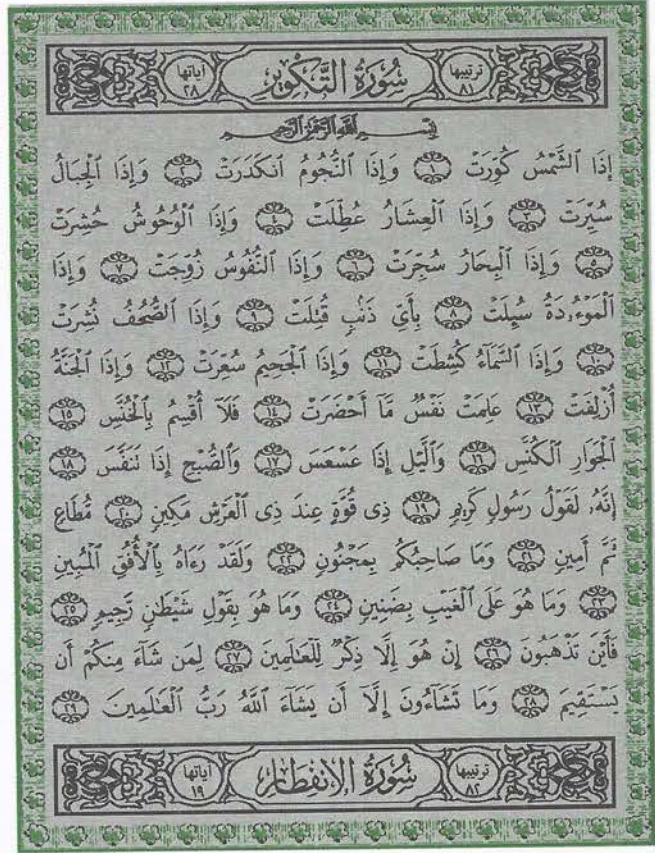 ترتيبها ٨١ سُورَةُ التَّكْوِيرِ اياتها ٢٨
بِسْمِ اللَّهِ الرَّحْمَٰنِ الرَّحِيمِ
إِذَا ٱلشَّمْسُ كُوِّرَتْ ١ وَإِذَا ٱلنُّجُومُ ٱنكَدَرَتْ ٢ وَإِذَا ٱلْجِبَالُ
سُيِّرَتْ ٣ وَإِذَا ٱلْعِشَارُ عُطِّلَتْ ٤ وَإِذَا ٱلْوُحُوشُ حُشِرَتْ
٥ وَإِذَا ٱلْبِحَارُ سُجِّرَتْ ٦ وَإِذَا ٱلنُّفُوسُ زُوِّجَتْ ٧ وَإِذَا
ٱلْمَوْءُۥدَةُ سُئِلَتْ ٨ بِأَيِّ ذَنۢبٍ قُتِلَتْ ٩ وَإِذَا ٱلصُّحُفُ نُشِرَتْ
١٠ وَإِذَا ٱلسَّمَآءُ كُشِطَتْ ١١ وَإِذَا ٱلْجَحِيمُ سُعِّرَتْ ١٢ وَإِذَا ٱلْجَنَّةُ
أُزْلِفَتْ ١٣ عَلِمَتْ نَفْسٌ مَّآ أَحْضَرَتْ ١٤ فَلَآ أُقْسِمُ بِٱلْخُنَّسِ ١٥
ٱلْجَوَارِ ٱلْكُنَّسِ ١٦ وَٱلَّيْلِ إِذَا عَسْعَسَ ١٧ وَٱلصُّبْحِ إِذَا تَنَفَّسَ ١٨
إِنَّهُۥ لَقَوْلُ رَسُولٍ كَرِيمٍ ١٩ ذِى قُوَّةٍ عِندَ ذِى ٱلْعَرْشِ مَكِينٍ ٢٠ مُّطَاعٍ
ثَمَّ أَمِينٍ ٢١ وَمَا صَاحِبُكُم بِمَجْنُونٍ ٢٢ وَلَقَدْ رَءَاهُ بِٱلْأُفُقِ ٱلْمُبِينِ
٢٣ وَمَا هُوَ عَلَى ٱلْغَيْبِ بِضَنِينٍ ٢٤ وَمَا هُوَ بِقَوْلِ شَيْطَٰنٍ رَّجِيمٍ ٢٥
فَأَيْنَ تَذْهَبُونَ ٢٦ إِنْ هُوَ إِلَّا ذِكْرٌ لِّلْعَٰلَمِينَ ٢٧ لِمَن شَآءَ مِنكُمْ أَن
يَسْتَقِيمَ ٢٨ وَمَا تَشَآءُونَ إِلَّآ أَن يَشَآءَ ٱللَّهُ رَبُّ ٱلْعَٰلَمِينَ ٢٩
ترتيبها ٨٢ سُورَةُ الإِنفِطَارِ اياتها ١٩